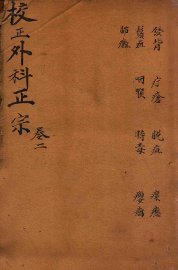 發背 疔瘡 脫疽 瘰癧
鬢疽 咽喉 時毒 癭瘤
肺癰
校正外科正宗 卷二